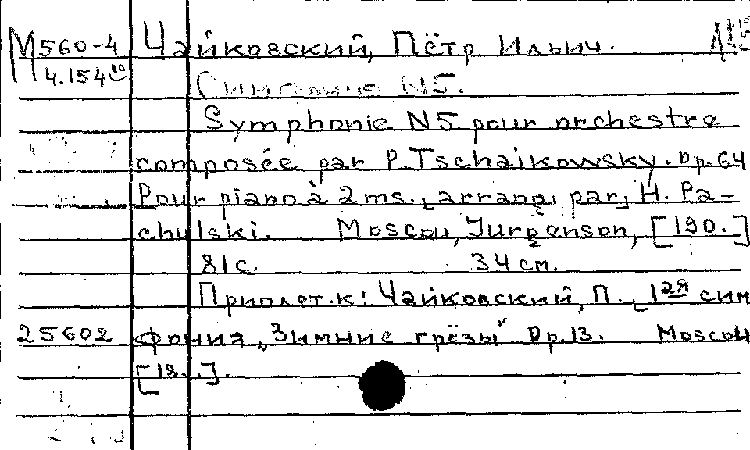 М560-4 Чайковский, Пётр Ильич.
4.154
Симфония N5.
Symphonie N5 pour orchestre
composée par P. Tschaikowsky. Op. 64
Pour piano à 2 ms. [arrang. par] H. Pa-
chulski. Moscou, Jurgenson, [190.]
81 с. 34 см.
Приплет. к: Чайковский, П. [1ая сим
25602 фония „Зимние грёзы" Op. 13. Moscou
[18..].